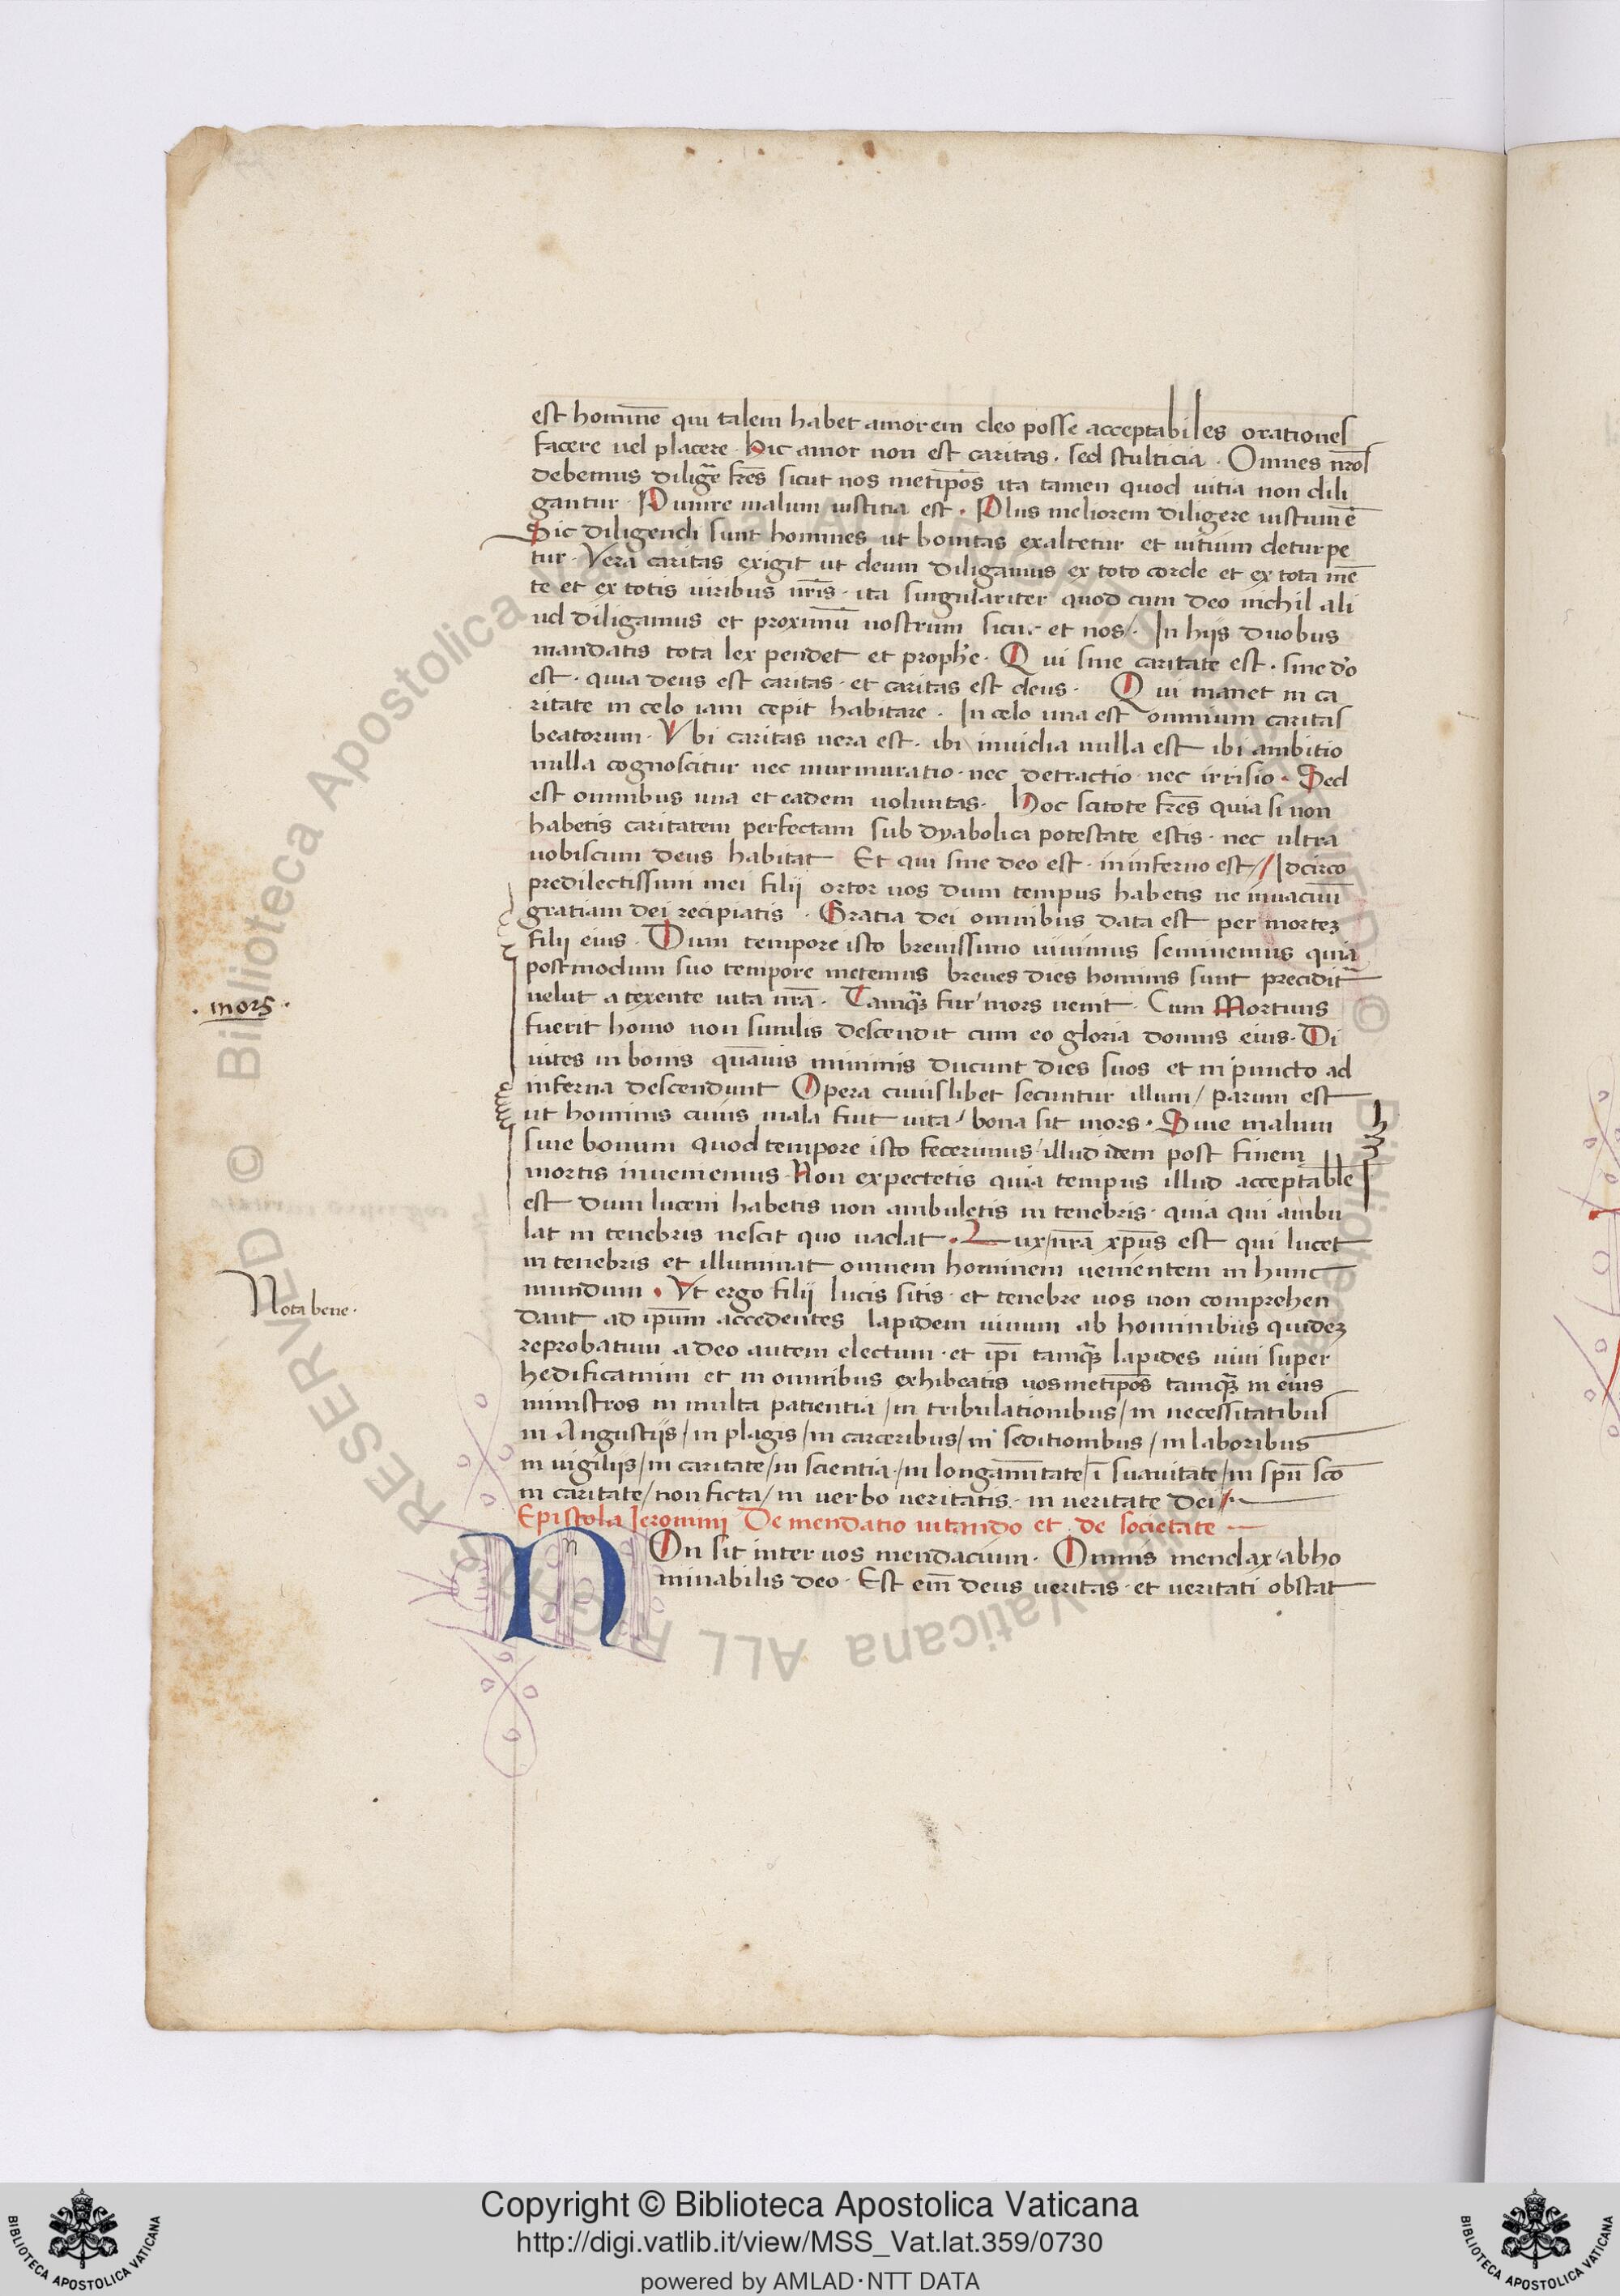 est hominē qui talem habet amorem deo posse acceptabiles orationes
facere uel placere · Hic amor non est caritas · sed stulticia · Omnes nr̄os
debemus diligr̄e fr̄es sicut nos metip̄os ita tamen quod uitia non dili
gantur · Punire malum iustitia est · Plus meliorem diligere iustum ē
Sic diligendi sunt homines ut bonitas exaltetur et uitium deturpe
tur · Vera caritas exigit ut deum diligamus ex toto corde et ex tota mē
te et ex totis uiribus nr̄is · ita singulariter quod cum deo nichil ali
ud diligamus et proximū nostrum sicut et nos/· In hijs duobus
mandatis tota lex pendet et proph̄e · Qui sine caritate est · sine d̄o
est · quia deus est caritas · et caritas est deus · Qui manet in ca
ritate in celo iam cepit habitare · In celo una est omnium caritas
beatorum · Vbi caritas uera est · ibi inuidia nulla est ibi ambitio
nulla cognoscitur nec murmuratio · nec detractio · nec irrisio · Sed
est omnibus una et eadem uoluntas · Hoc scitote fr̄es quia si non
habetis caritatem perfectam sub dyabolica potestate estis · nec ultra
uobiscum deus habitat Et qui sine deo est · in inferno est // Idcirco
predilectissimi mei filij ortor uos dum tempus habetis ne inuacuū
gratiam dei recipiatis · Gratia dei omnibus data est per mortez
filij eius · Dum tempore isto breuissimo uiuimus seminemus quia
postmodum suo tempore metemus breues dies hominis sunt precidit̄
uelut a texente uita nr̄a · Tamq̄ȝ fur mors uenit · Cum Mortuus
fuerit homo non similis descendit cum eo gloria domus eius · Di
uites in bonis quāuis minimis ducunt dies suos et in puncto ad
inferna descendunt Opera cuiuslibet secuntur illum / parum est
ut hominis cuius mala fuit uita / bona sit mors · Siue malum
siue bonum quod tempore isto fecerimus / illud idem post finem
mortis inueniemus · Non expectetis quia tempus illud acceptabile
est dum lucem habetis non ambuletis in tenebris · quia qui ambu
lat in tenebris nescit quo uadat · Lux / nr̄a xp̄us est qui lucet
in tenebris et illuminat omnem hominem uenientem in hunc
mundum · Vt ergo filij lucis sitis · et tenebre uos non comprehen
dant ad ip̄um accedentes lapidem uiuum ab hominibus quidez
reprobatum a deo autem electum · et ip̄i tamq̄ȝ lapides uiui super
hedificamini et in omnibus exhibeatis uosmetip̄os tamq̄ȝ in eius
ministros in multa patientia / in tribulationibus / in necessitatibus
in Angustijs / in plagis / in carceribus / in seditionibus / in laboribus
in vigilijs / in caritate / in scientia · / in longanītate / ī suauitate / in sp̄u sc̄o
in caritate / non ficta / in uerbo ueritatis · in ueritate dei /·
Epistola Ieronimi De mendatio uitando et de societate
NOn sit inter uos mendacium · Omnis mendax / abho
minabilis deo · Est em̄ deus ueritas · et ueritati obstat
· mors ·
Nota bene ·
Copyright © Biblioteca Apostolica Vaticana
http://digi.vatlib.it/view/MSS_Vat.lat.359/0730
powered by AMLAD·NTT DATA
BIBLIOTECA APOSTOLICA VATICANA
BIBLIOTECA APOSTOLICA VATICANA